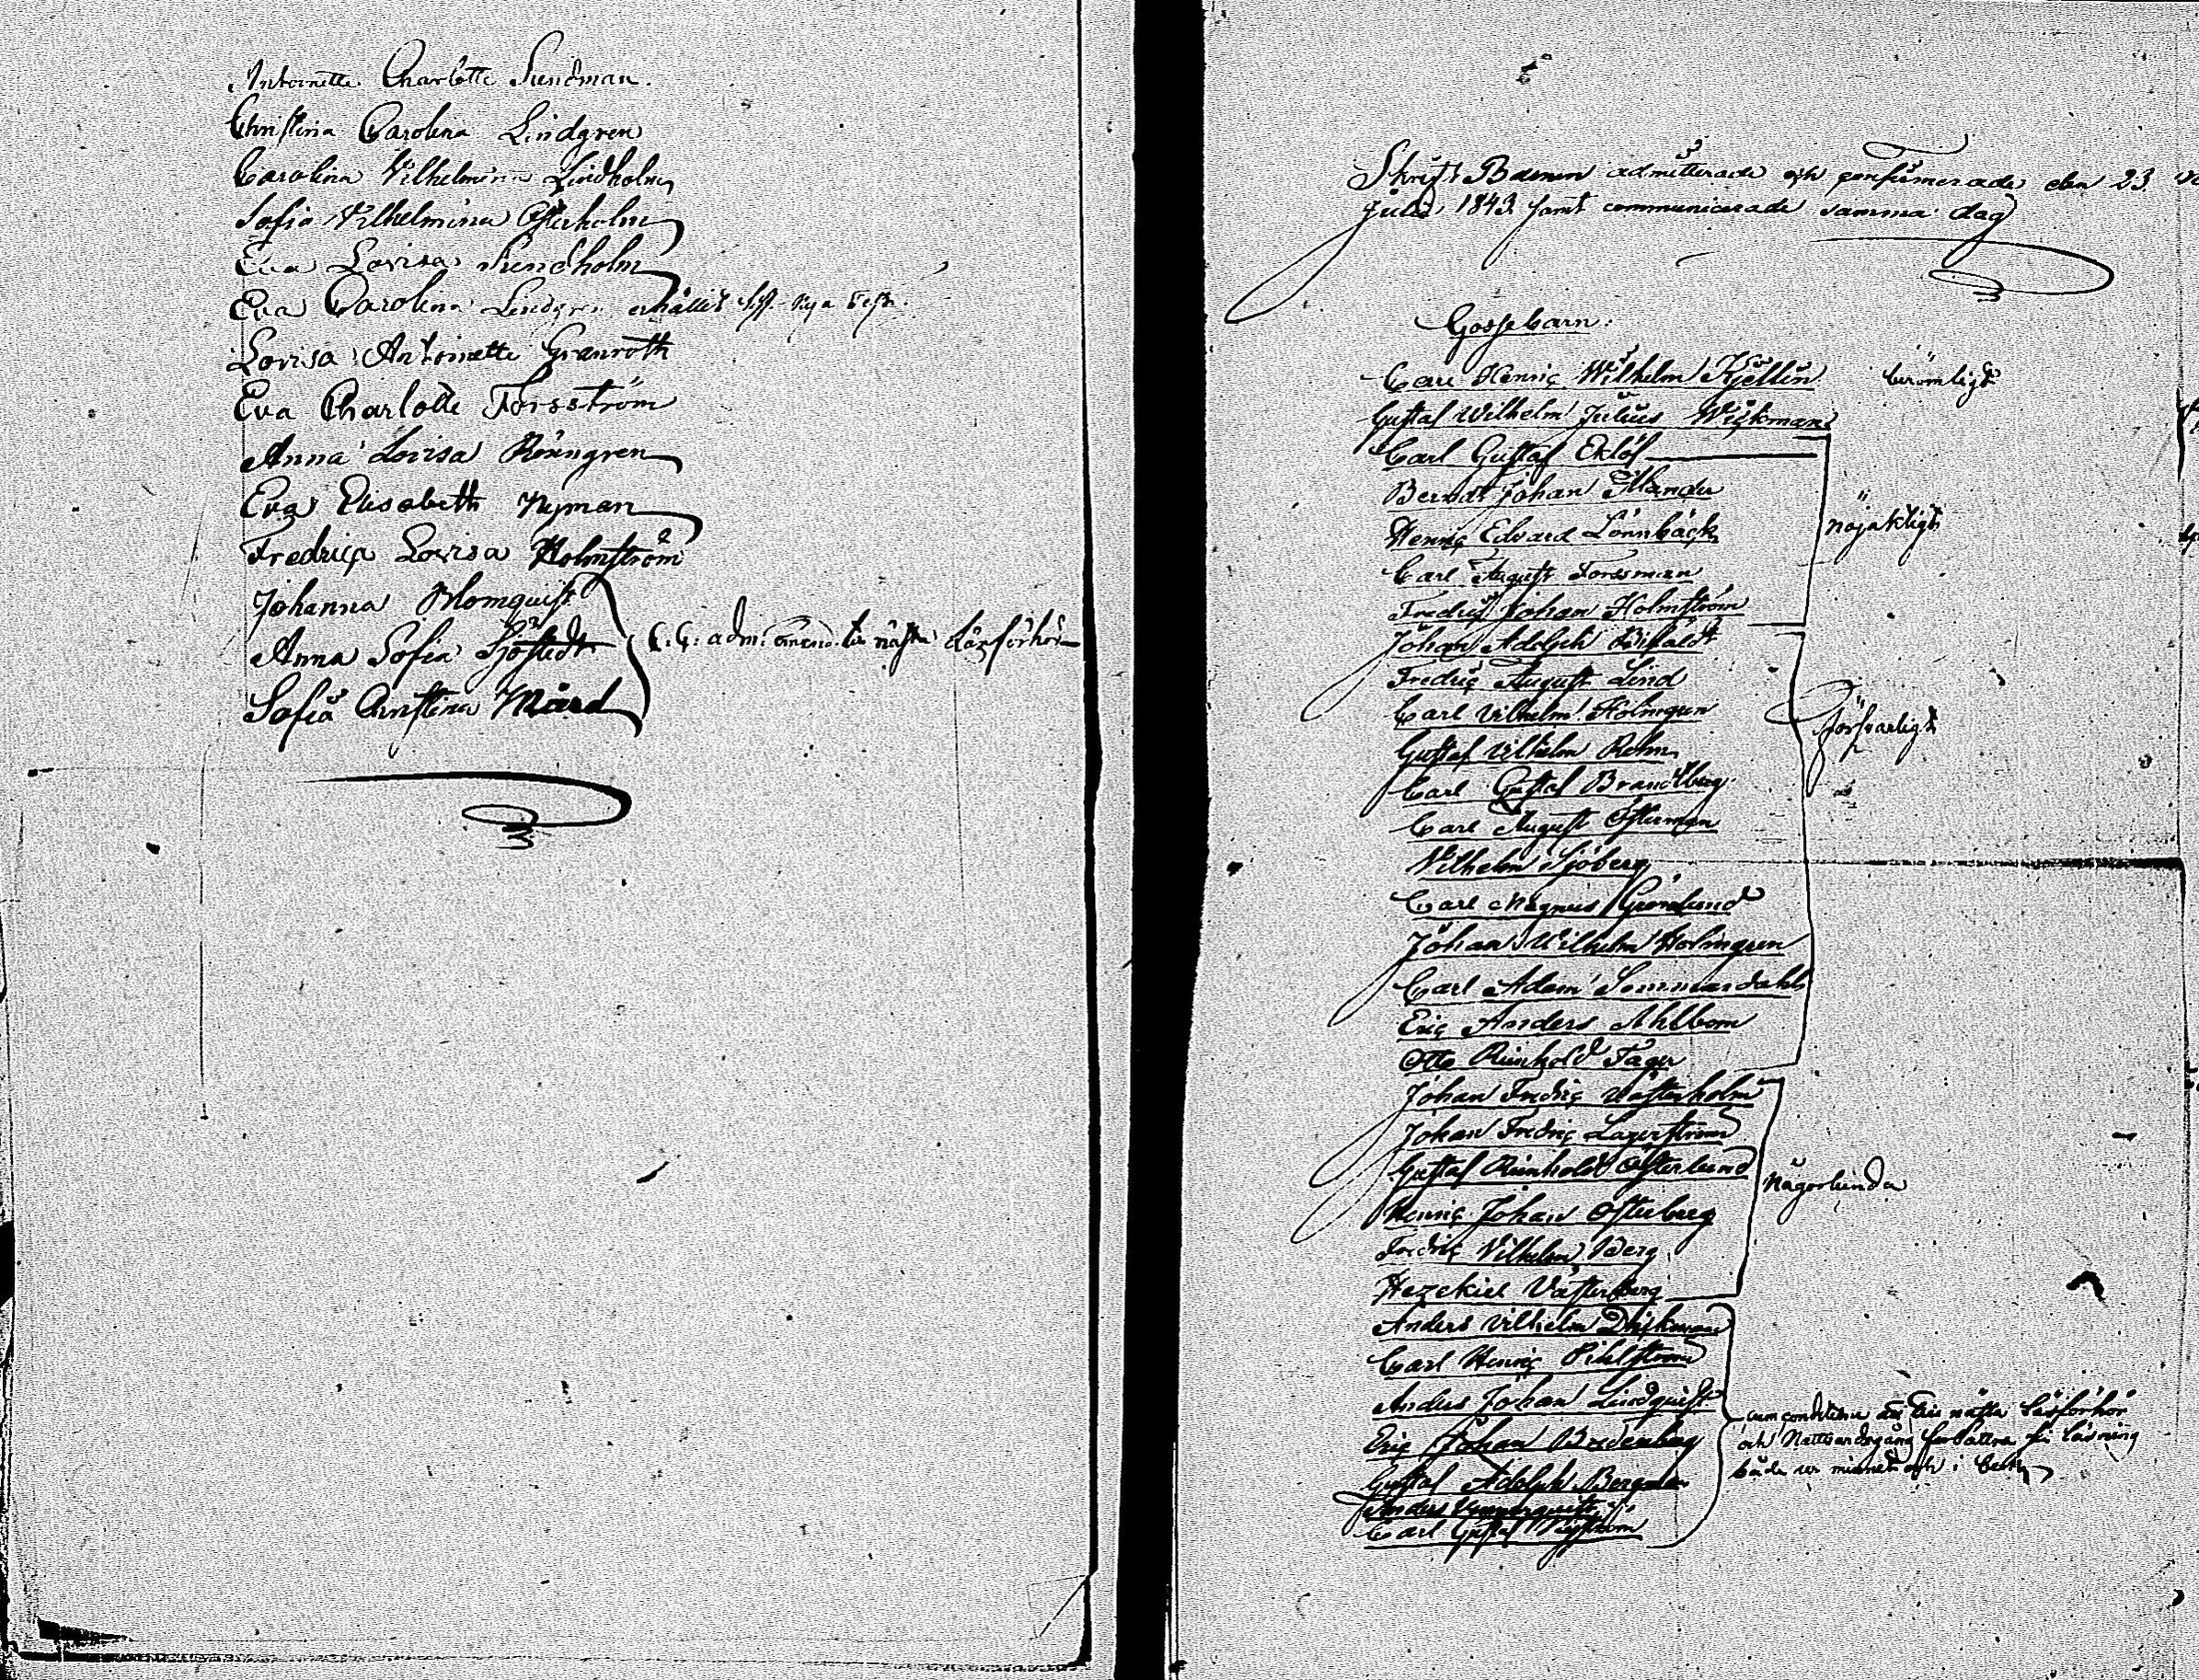 Antoinette Charlotte Sundman.
Christina Carolina Lindgren
Carolina Vilhelmina Lindholm
Sofia Vilhelmina Österholm
Eva Lovisa Sundholm
Eva Carolina Lindgren erhållit
Lovisa Antoinette Granroth
Eva Charlotte Forsström
Anna Lovisa Röningren
Eva Elisabeth Nyman
Fredrica Lovisa Holmström
Johanna Blomquist
Anna Sofia Sjöstedt
adm. till nästa Läsförhör
Sofia Christina Mård
Skrift Barnen admitterade och confirmerade den 23
Julii 1843 samt communicerade samma dag
Gossebarn:
Carl Henric Wilhelm Kjellin berömligt
Gustaf Wilhelm Julius Wickman
Carl Gustaf Eklöf
Berndt Johan
Henric Edvard Lönnbäck nöjaktligt
Carl August Forssman
Fredric Johan Holmström
Johan Adolph
Fredric August Lind
Carl Vilhelm Holmgren försvarligt
Gustaf Vilhelm Rehn
Carl Gustaf Brandtberg
Carl August Österman
Vilhelm Sjöberg
Carl Magnus Grönlund
Johan Wilhelm Holmgren
Carl Adam Sommardahl
Eric Anders Ahlbom
Otto Reinhold Fager
Johan Fredric Västerholm
Johan Fredric Lagerström
Gustaf Reinhold Österlund någorlunda
Henric Johan Österberg
Fredric Vilhelm Berg
Hezekiel Västerberg
Anders Vilhelm
Carl Henric Pihlström
Anders Johan Lindquist
cum conditione att till nästa läsförhör
och Nattvardsgång förbättra sin läsning
både ur minnet och i bok
Eric Johan Brudenberg
Gustaf Adolph Bergman
Anders
Carl Gustaf Nyström